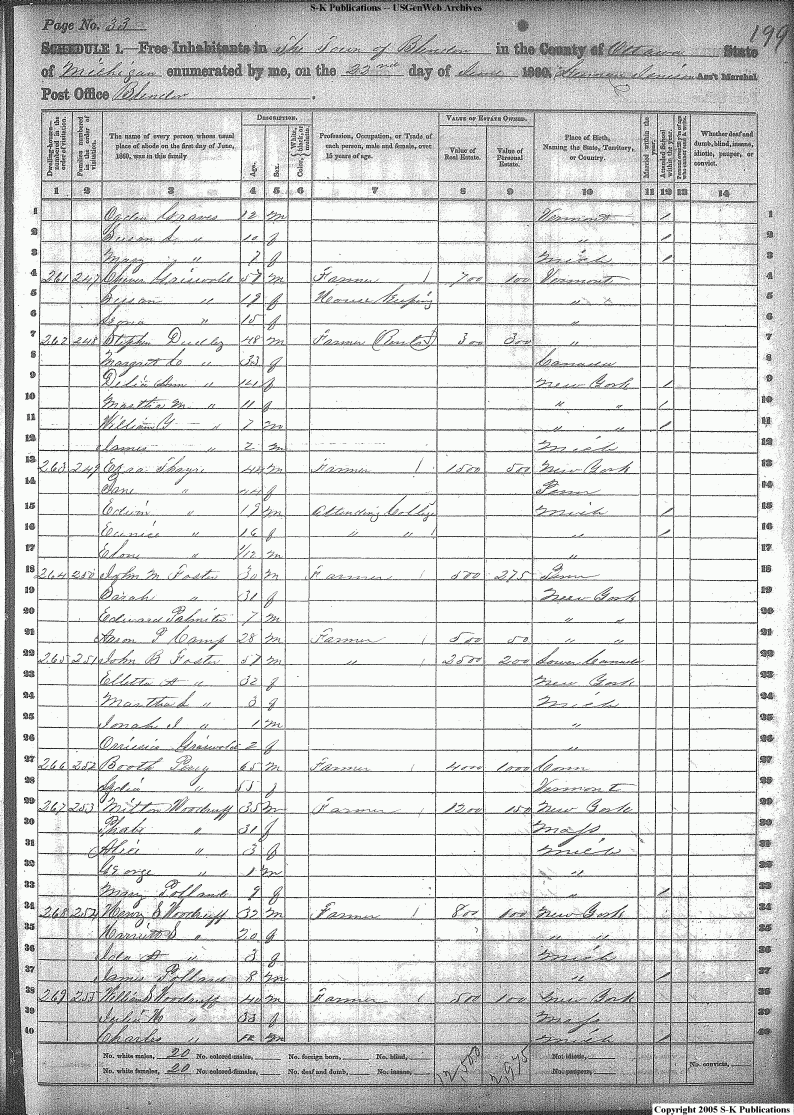 S-K Publications -- USGenWeb Archives
Page No. 33
199
SCHEDULE 1.—Free Inhabitants in The Town of Blendon in the County of Ottawa State
of Michigan enumerated by me, on the 22nd day of June 1860. Ass't Marshal
Post Office Blendon .
DESCRIPTION. VALUE OF ESTATE OWNED.
Dwelling-houses—numbered in the order of visitation. Families numbered in the order of visitation. The name of every person whose usual place of abode on the first day of June, 1860, was in this family Age. Sex. Color, White, black, or mulatto. Profession, Occupation, or Trade of each person, male and female, over 15 years of age. Value of Real Estate. Value of Personal Estate. Place of Birth, Naming the State, Territory, or Country. Married within the year. Attended School within the year. Whether deaf and dumb, blind, insane, idiotic, pauper, or convict.
1 2 3 4 5 6 7 8 9 10 11 12 13 14
1 Ogden Graves 12 m Vermont 1 1
2 Susan " 10 f " 1 2
3 Mary " 7 f Mich 1 3
4 261 247 Griswold 57 m Farmer 1 700 100 Vermont 4
5 Susan " 19 f House Keeping " 5
6 " 15 f " 6
7 262 248 Stephen Dudley 48 m Farmer 1 300 300 " 7
8 Margrett " 33 f Canada 8
9 Delia Ann " 14 f New York 1 9
10 Martha M. " 11 f " " 1 10
11 William G — " 7 m " " 1 11
12 James " 2 m Mich 12
13 263 249 Ezra Thayre 44 m Farmer 1 1500 500 New York 13
14 Jane " 44 f Penn 14
15 Edwin " 19 m Attending College Mich 1 15
16 Eunice " 16 f " " 1 " 1 16
17 " /12 m " 17
18 264 250 John M Foster 30 m Farmer 1 500 275 Penn 18
19 Sarah " 31 f New York 19
20 Edward Palmiter 7 m " " 20
21 Aaron P Camp 28 m Farmer 1 500 50 " " 21
22 265 251 John B Foster 57 m " 1 2500 200 Lower Canada 22
23 " 32 f New York 23
24 Martha L " 3 f Mich 24
25 Jonah J " 1 m " 25
26 Griswold 2 f " 26
27 266 252 Booth 65 m Farmer 1 4000 1000 Conn 27
28 Lydia " 55 f Vermont 28
29 267 253 Milton Woodruff 35 m Farmer 1 1200 150 New York 29
30 Phabe " 31 f Mass 30
31 Alice " 3 f Mich 31
32 George " 1 m " 32
33 Mary Pollard 9 f " 1 33
34 268 254 Henry E Woodruff 32 m Farmer 1 800 100 New York 34
35 Harriett E " 20 f " " 35
36 Ida A " 3 f Mich 36
37 James Pollard 8 m " 1 37
38 269 255 William S Woodruff 40 m Farmer 1 500 100 New York 38
39 Julia M " 33 f Mass 39
40 Charles " 12 m Mich 1 40
No. white males, 20 No. colored males, No. foreign born, No. blind, 12,500 2,975 No. idiotic, No. convicts,
No. white females, 20 No. colored females, No. deaf and dumb, No. insane, No. paupers,
Copyright 2005 S-K Publications